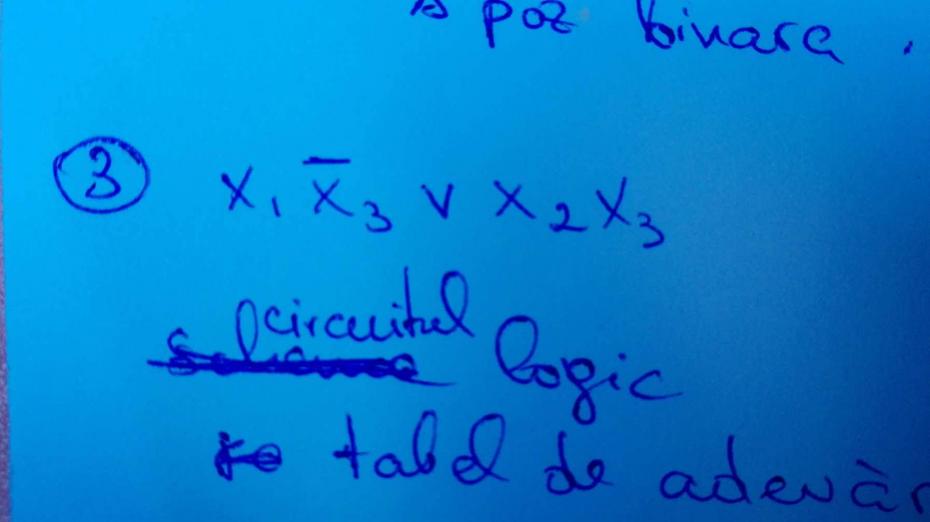 poz binara.
3 X₁ X̄₃ V X₂X₃
circuitul
logic
tabel de adevăr